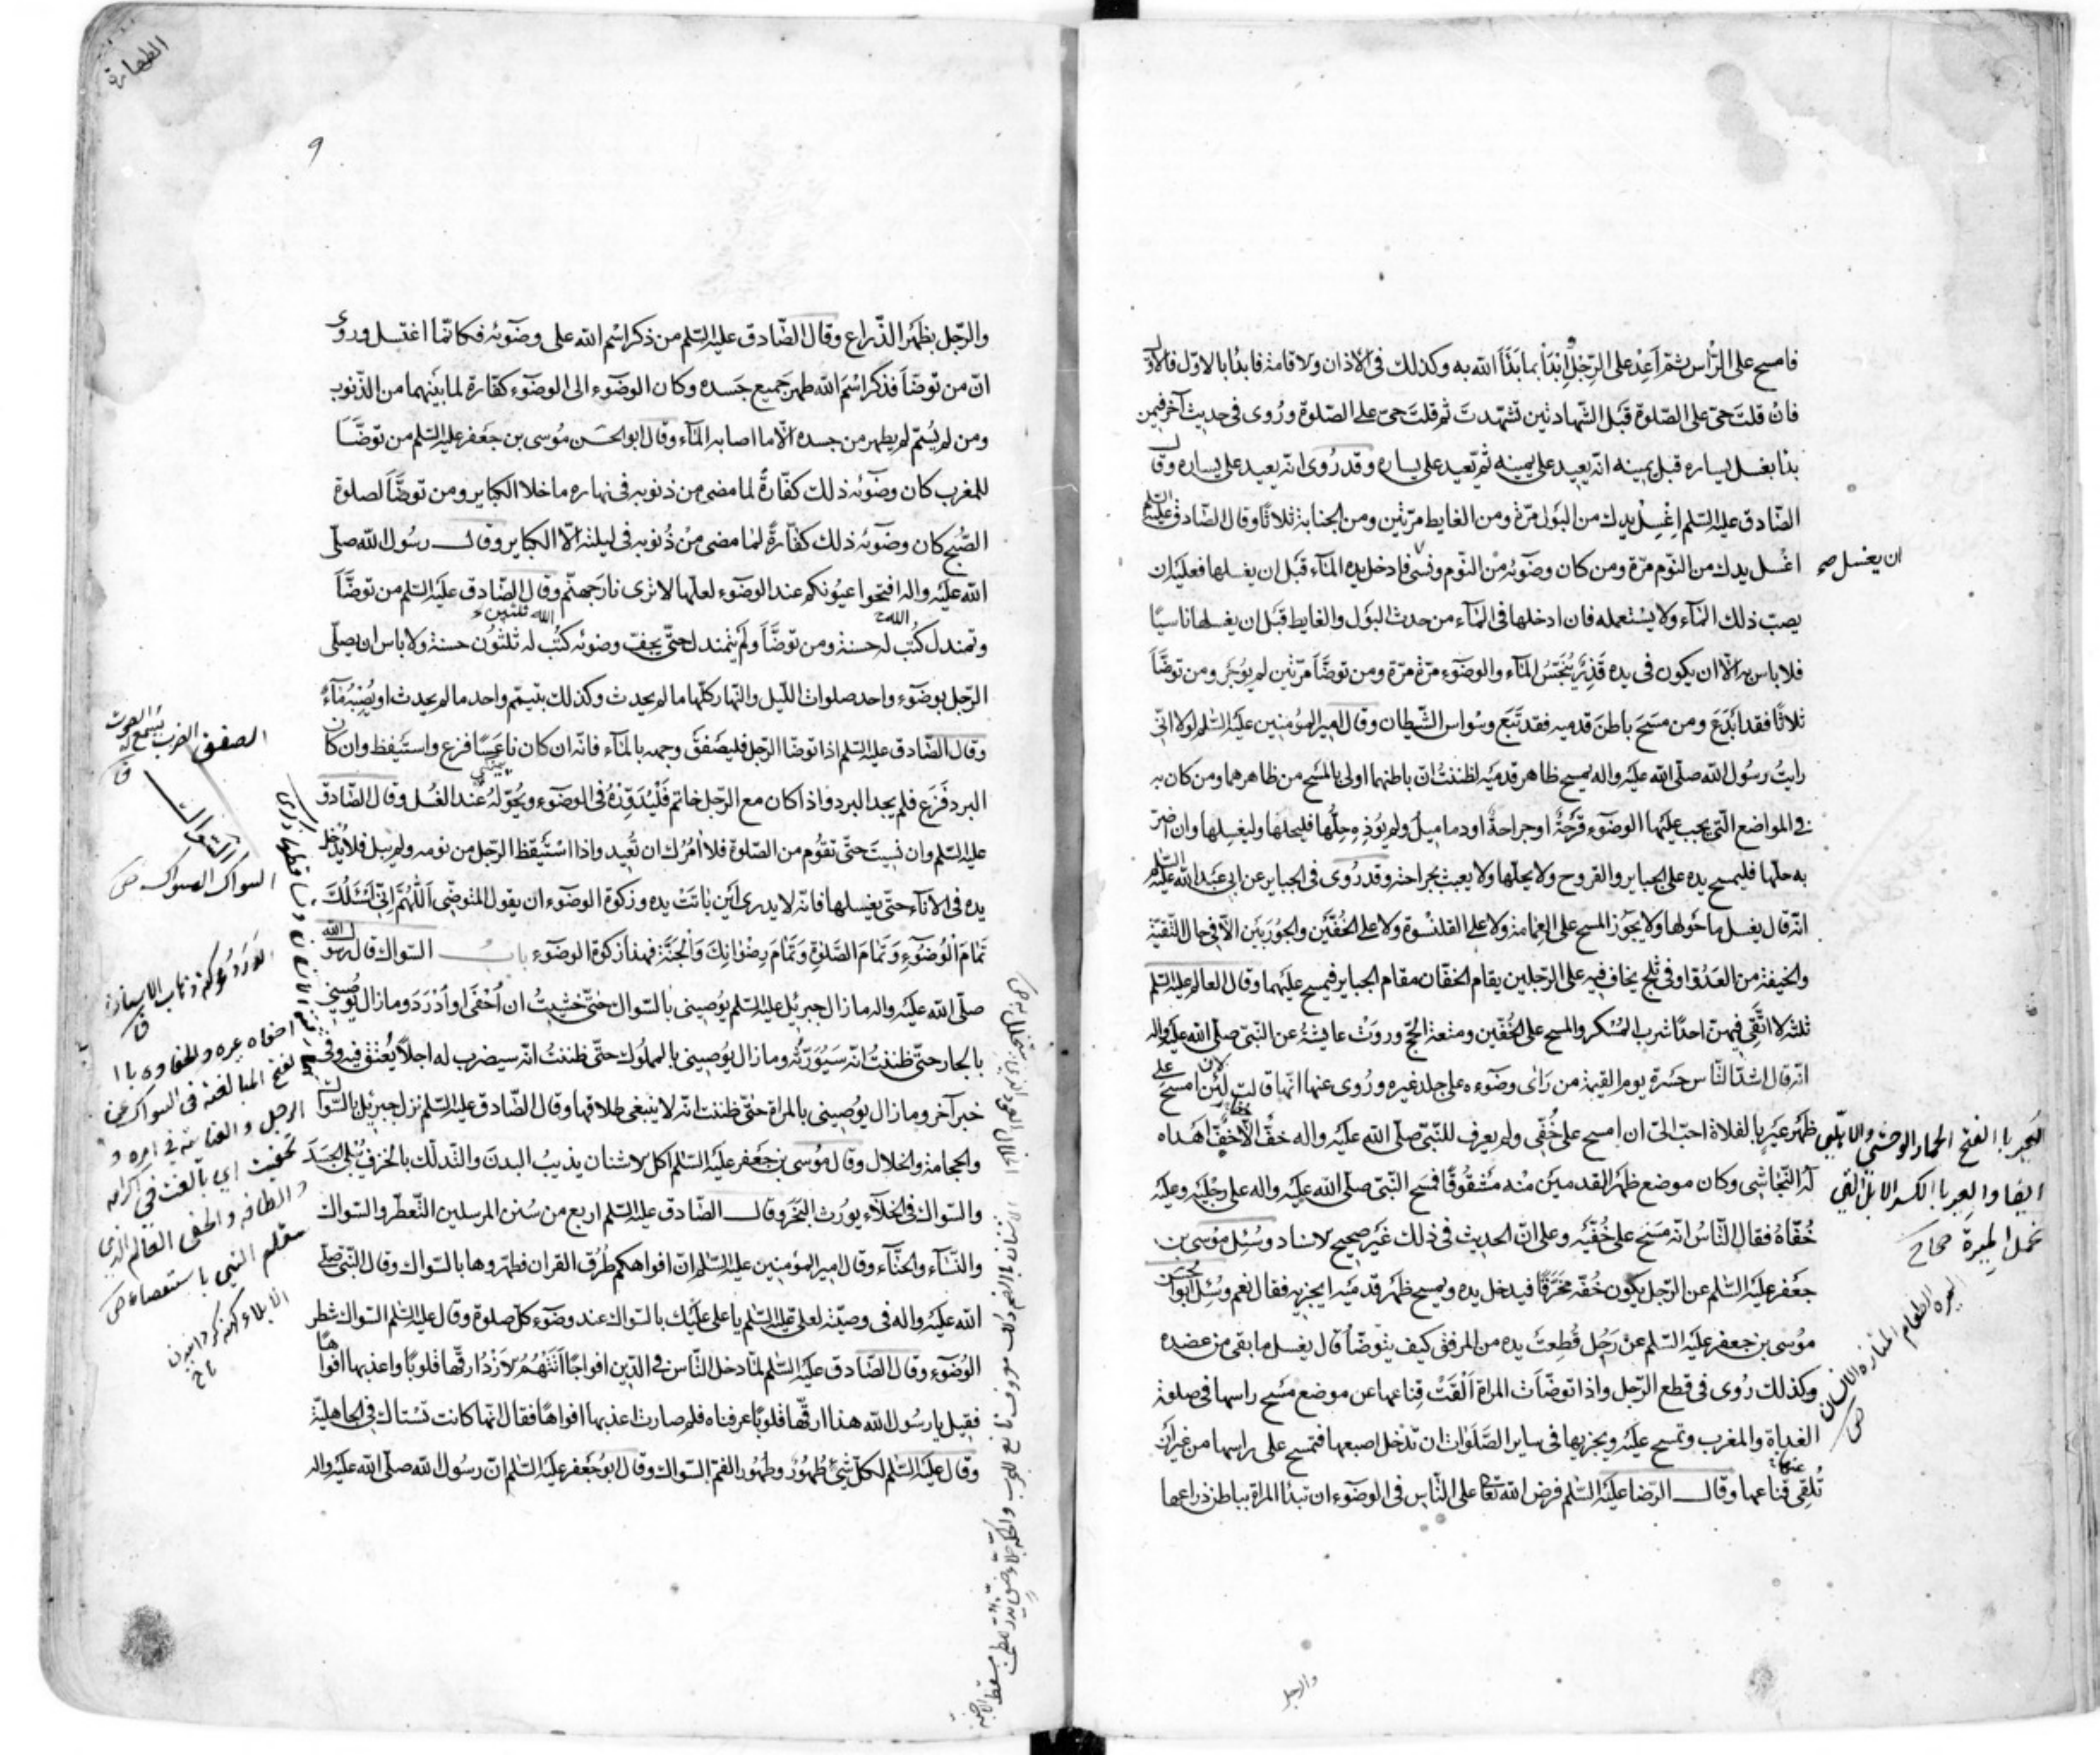 فامسح على الرّأس ثمّ أعِدْ على الرِّجل اِبْدَأ بما بَدَأ الله به وكذلك فى الاذان ولاقامة فابدُا بالاوّل فالاوّل
فان قلتَ حىّ على الصّلوة قَبْل الشّهادتين تشهّدتَ ثم قلتَ حىّ على الصّلوة ورُوى فى حديث آخر فيمن
بدا بغسل يساره قبل يمينه انّه يعيد على يمينه ثم يعيد على يساره وقد رُوى انّه يعيد على يساره وقال
الصّادق عليه السّلم اِغسِل يدك من البَول مرّة ومن الغايط مرّتين ومن الجنابة ثلاثا وقال الصّادق عليه السّلم
اغْسل يدك من النّوم مرّة ومن كان وضوئه مْن النّوم ونسى فادخل يده المآء قبل ان يغسلها فعليه ان
ان يغسل صح
يصبّ ذلك المآء ولا يسْتعمله فان ادخلها فى المآء من حدث البَول والغايط قبل ان يغسلها ناسيًا
فلا باس به الّا ان يكون فى يده قَذِرٌ يُنَجّسُ المآء والوضوء مرّة مرّة ومن توضّأ مرّتين لم يُوجَر ومن توضّأ
ثلاثا فقد ابْدَعَ ومن مسَحَ باطنَ قدميه فقد تَبَع وسْواس الشّيطان وقال امير المؤمنين عليه السّلم لولا انّى
رايتُ رسُول الله صلّى الله عليه واله يمسح ظاهر قدمَيه لظننتُ انّ باطنهما اولى بالمسْح من ظاهرهما ومن كان به
فى المواضع الّتى يجب عليها الوضوء قَرحَةٌ او جراحةٌ او دماميلُ ولم يُوذِهِ حِلُّها فليحلها وليغسلها وان اضرّ
به حلّها فليمسح يده على الجباير والقروح ولا يحلّها ولا يعبث بجراحته وقد رُوى فى الجباير عن ابى عبد الله عليه السّلم
انّه قال يغسل ما حَولها ولا يجوز المسح على العمامة ولا على القلنسْوة ولا على الخُفّين والجُورَبَين الّا فى حال التّقيّة
والخيفة من العَدُوّ او فى ثلج يخاف فيه على الرّجلين يقام الخفّان مقام الجباير فيمسح عليهما وقال العالم عليه السّلم
ثلثة لا اتّقى فيهنّ احدًا شرب المُسْكر والمسح على الخُفّين ومتعة الحجّ وروَتْ عايشةُ عن النّبىّ صلّى الله عليه واله
انّه قال اشدّ النّاس حَسْرة يوم القيمة من رَاى وضوءه على جلد غيره ورُوى عنها انّها قالت لئن امسح على
ظَهْر عَيرٍ بالفلاة احبّ الىّ ان امسح على خُفّى ولم يعرف للنّبىّ صلّى الله عليه واله خفٌّ الّا خُفّ اَهداه
لَهُ النّجاشى وكان موضع ظَهْر القدمين منْه مشْقُوقًا فمسَح النّبىّ صلّى الله عليه واله على رجْلَيه وعليه
خُفّاهُ فقال النّاسُ انّه مسَح على خُفّيه وعلى انّ الحديث فى ذلك غَير صحيح لاسناد وسُئِل مُوسى بن
جَعفر عليه السّلم عن الرّجل يكون خُفّه مخَرّقًا فيدخل يده ويمسح ظَهْر قدمَيه ايجزيه فقال نعم وسُئِل ابو الحسن
مُوسى بن جعفر عليه السّلم عن رَجُل قُطِعتَ يده من المرفق كيف يتوضّأ قال يغسل ما بقى من عضده
وكذلك رُوى فى قطع الرّجل واذا توضّأت المراة اَلْقَتْ قِناعها عن موضع مَسْح راسها فى صلوة
الغداة والمغرب وتمسح عليه ويجزيها فى ساير الصَّلَوات ان تدْخل اصبعها فتمسح على راسها من غير ان
تُلقِى عنها قناعها وقال الرّضا عليه السّلم فرض الله تعا على النّاس فى الوضوء ان تبدأ المراة بباطن ذراعها
العَير با الفتح الحمار الوحشى والاهلى
ايضا والعِير با الكسر الابل التى
تحمل الميرة صحاح
الميره الطعام
والرجل
الطهارة
٩
والرّجل بظَهْر الذّراع وقال الصّادق عليه السّلم من ذكر اسْم الله على وضوئه فكانّما اغتسل وروى
انّ من توضّأ فذكر اسْمَ الله طهر جَميع جَسده وكان الوضوء الى الوضوء كفّارة لما بَينهما من الذّنوب
ومن لم يُسَمّ لم يطهر من جسده الّا ما اصابه المآء وقال ابو الحسَن مُوسى بن جَعفر عليه السّلم من توضَّأ
للمغرب كان وضوئه ذلك كفّارةً لما مضى من ذنوبه فى نهاره ما خلا الكباير ومن توضَّأ لصلوة
الصُّبح كان وضوئه ذلك كفّارةً لما مضى مْن ذُنوبه فى ليلته الّا الكباير وقال رسُول الله صلّى
الله عليه واله افتحوا عيُونكم عند الوضوء لعلّها لا ترى نار جهنّم وقال الصّادق عليه السّلم من توضَّأ
وتمندل كُتب له حسنة ومن توضَّأ ولَم يتمندل حتّى يجفّ وضوئه كتُب له ثلثُون حسنة ولا باس ان يصلّى
الرّجل بوضوء واحد صلوات اللّيل والنّهار كلّها ما لم يحدث وكذلك بتيمّم واحد ما لم يحدث او يُصِبْ مآءً
وقال الصّادق عليه السّلم اذا توضّا الرّجل فليَصْفقْ وجهه بالمآء فانّه ان كان ناعسًا فزع واستَيقظ وان كان
البرد فَزِع فلم يجد البرد واذا كان مع الرّجل خاتم فَلْيُدَوِّرْهُ فى الوضوء ويُحَوّلهُ عند الغُسل وقال الصّادق
عليه السّلم وان نَسِيتَ حتّى تقُوم من الصّلوة فلا آمُرُك ان تُعِيد واذا اسْتَيقظ الرّجل من نومه ولم يبل فلا يُدْخل
يده فى الاناء حتّى يغسلها فانّه لا يدرى اَين باتَتْ يده وزكوة الوضوء ان يقول المتوضّى اَللّهُمَّ اِنّى اَسْئَلُكَ
تَمامَ الْوُضوءِ وَتَمامَ الصَّلوةِ وَتَمامَ رِضْوانِكَ وَالْجَنَّةَ فهذا زكوة الوضوء باب السّواك قال رسُول الله
صلّى الله عليه واله ما زال جبريُل عليه السّلم يُوصينى بالسّواك حتّى خشيتُ ان اُحْفى او اَدْرَدَ وما زال يُوصينى
بالجار حتّى ظننتُ انّه سَيُوَرّثُه وما زال يُوصينى بالمملُوك حتّى ظننتُ انّه سيضرب له اجلاً يُعْتق فيه وفى
خبر آخر وما زال يوُصينى بالمراة حتّى ظننت انّه لا ينبغى طلاقها وقال الصّادق عليه السّلم نزل جبرئيل بالسّواك
والحجامة والخلال وقال مُوسى بن جَعفر عليه السّلم اكل لاشنان يذيبُ البدن والتّدلّك بالخزف يُبلى الجسَد
والسّواك فى الخلاء يُورث البَخَر وقال الصّادق عليه السّلم اربع من سُنن المرسلين التّعطّر والسّواك
والنّسآء والحنّاء وقال امير المؤمنين عليه السّلم انّ افواهكم طُرُق القران فطهّروها بالسّواك وقال النّبىّ صلّى
الله عليه واله فى وصيّته لعلىّ عليه السّلم يا على عليك بالسّواك عند وضوء كلّ صلوة وقال عليه السّلم السّواك شطر
الوُضوء وقال الصّادق عليه السّلم لمّا دخل النّاس فى الدّين افواجًا اَتَتْهُمُ لازْدُ ارقّها قلوبًا واعذبها افواهًا
فقيل يا رسُول الله هذا ارقّها قلوبًا عرفناه فلم صارت اعذبها افواهًا فقال انّها كانت تسْتاك فى الجاهليّة
وقال عليه السّلم لكلّ شىء طُهُورٌ وطهُور الفم السّواك وقال ابو جَعفر عليه السّلم انّ رسُول الله صلّى الله عليه واله
الصفق الضرب يُسمع له الصوت
السواك المسواك ص